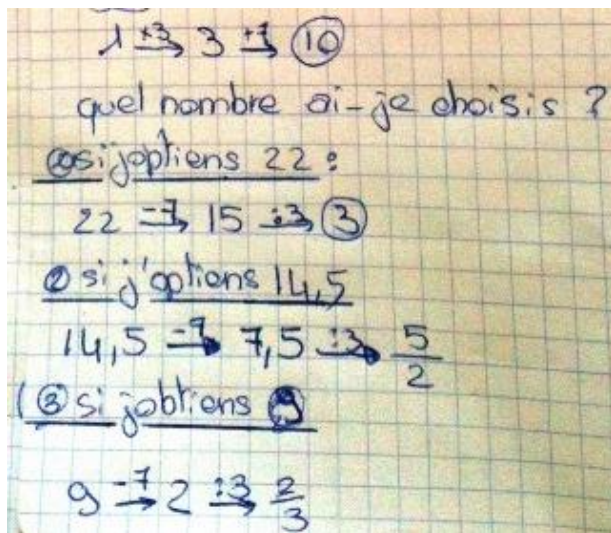 1 ×3→ 3 +7→ 10
quel nombre ai-je choisis ?
① si joptiens 22 :
22 −7→ 15 :3→ 3
② si j'optiens 14,5
14,5 −7→ 7,5 :3→ 5/2
( ③ si jobtiens 9
9 −7→ 2 :3→ 2/3